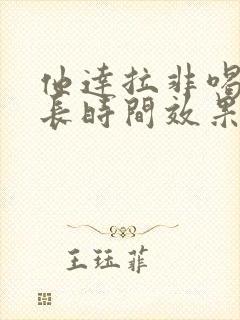 他達拉非喝
長時間效果
王珏菲